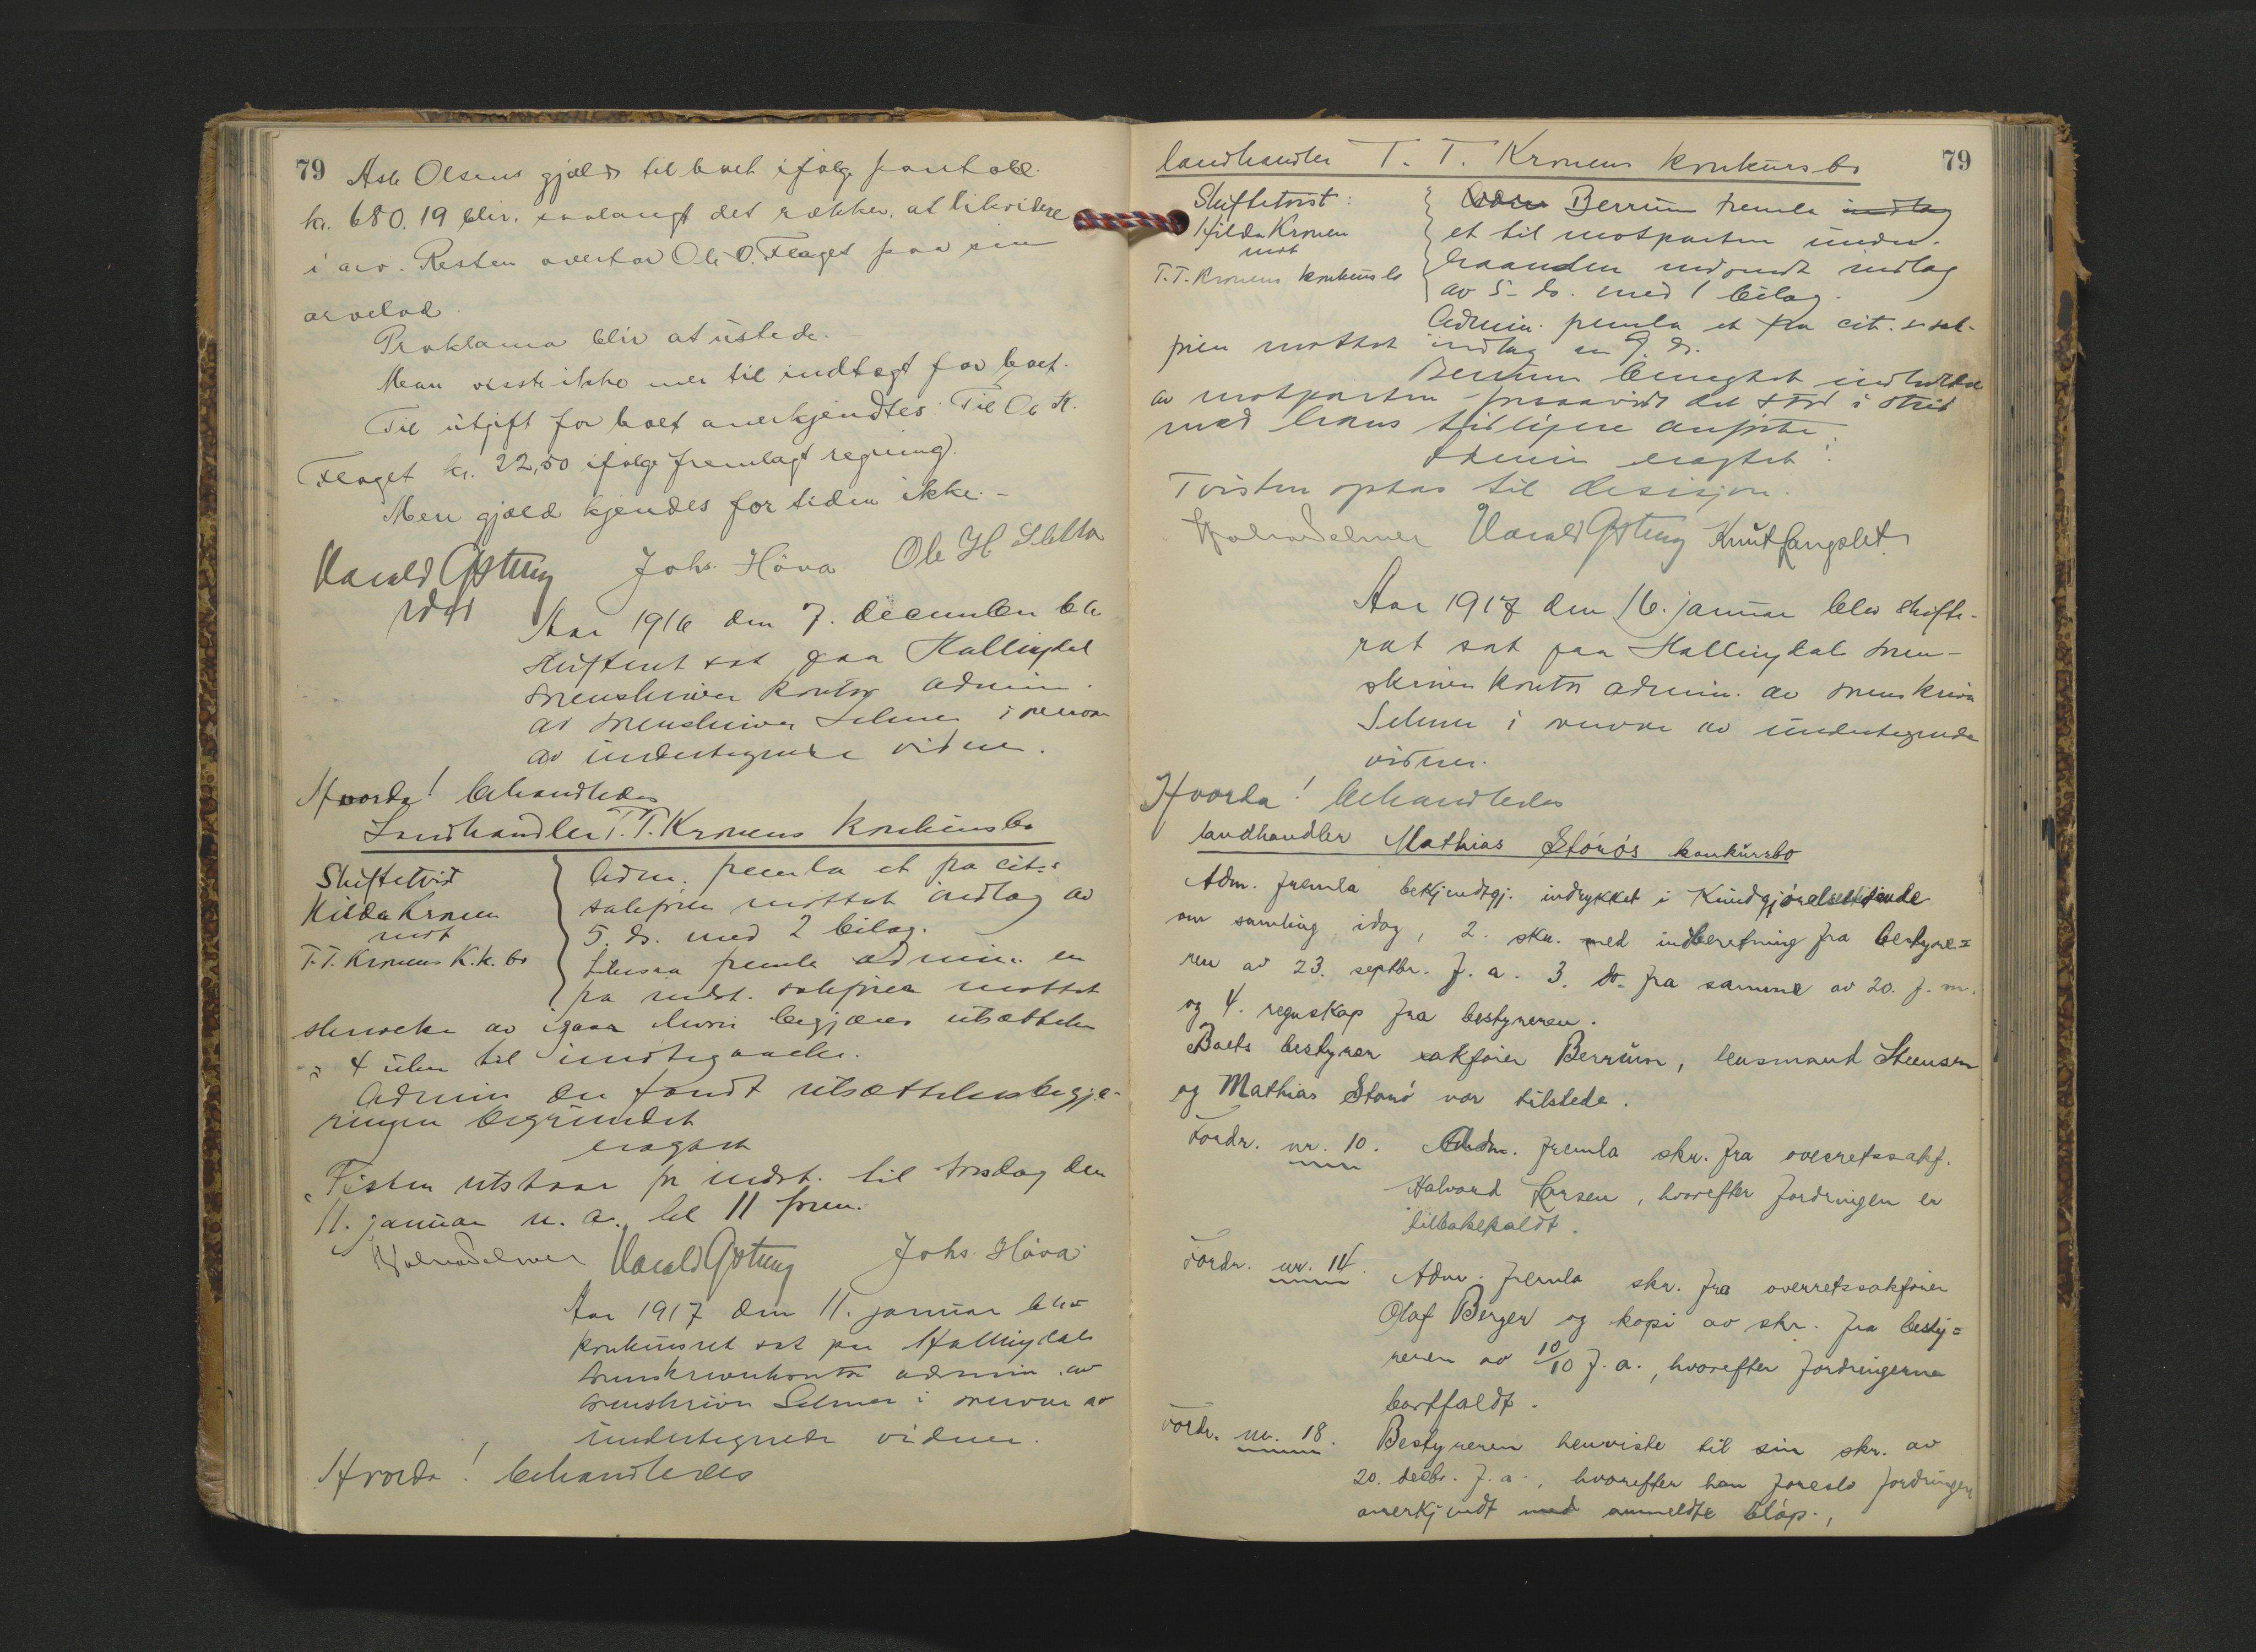 79
Ask Olsens gjæld til boet ifølge pantobl.
kr. 680.19 blir, saalangt det rækker, at likvidere
i arv. Resten overtar Ole O. Flaget paa sin
arvelod.
Proklama blir at utstede.
Man visste ikke mer til indtægt for boet.
Til utgift for boet anerkjendtes: Til Ole K.
Flaget kr. 22,50 ifølge fremlagt regning.
Mere gjæld kjendes for tiden ikke.-
Harald Johs. Höva Ole H
Aar 1916 den 7. december blev
skifteret sat paa Hallingdal
sorenskriver kontor admin.
av sorenskriver Selmer i nærvær
av undertegnede vidner.
Hvorda! behandledes
Landhandler T.T. Kronens konkursbo
Skiftetvist
Hilda Kronen
mot
T.T. Kronens K.k. bo
Adm. fremla et fra cit.s
sakfører mottat indlæg av
5. ds. med 2 bilag.
Likesaa fremla admin. en
fra indst. sakfører mottat
skrivelse av igaar hvori begjæres utsættelse
i 4 uker til imøtegaaelse.
Admin der fandt utsættelsesbegjæ-
ringen begrundet
eragtet
Tvisten utstaar pr indst. til torsdag den
11. januar n. a. kl 11 form.
Harald Johs. Höva
Aar 1917 den 11. januar blev
konkursret sat paa Hallingdals
sorenskriverkontor admin. av
sorenskriver Selmer i nærvær av
undertegnede vidner.
Hvorda! behandledes
79
landhandler T. T. Kronens konkursbo
Skiftetvist:
Hilda Kronen
mot
T.T. Kronens konkursbo
Berrum fremla indlæg
et til motparten under-
haanden indsendt indlæg
av 5 ds. med 1 bilag.
Admin. fremla et fra cit. s sak-
fører mottat indlæg av 9. ds.
Berrum benegtet indholdet
av motparten forsaavidt det stod i strid
med hans tidligere anførte.
Admin eragtet:
Tvisten optas til decisjon.
Harald Knut Langslet
Aar 1917 den 16. januar blev skifte-
ret sat paa Hallingdals soren-
skriver kontor admin. av sorenskriver
Selmer i nærvær av undertegnede
vidner.
Hvorda! behandledes
landhandler Mathias Storös konkursbo
Adm. fremla bekjendtgj. indrykket i Kundgjørelsestidende
om samling idag, 2. skr. med indberetning fra bestyre=
ren av 23. septbr. f. a. 3. do. fra samme av 20. f. m.
og 4. regnskap fra bestyreren.
Boets bestyrer sakfører Berrum, lensmand Steensen
og Mathias Storö var tilstede.
Fordr. nr. 10. Adm. fremla skr. fra overretssakf.
Halvord Larsen, hvorefter fordringen er
tilbakekaldt.
Fordr. nr. 14. Adm. fremla skr. fra overretssakfører
Olaf Berger og kopi av skr. fra besty=
reren av 10/10 f. a., hvorefter fordringerne
bortfaldt.
Fordr. nr. 18. Bestyreren henviste til sin skr. av
20. decbr. f. a., hvorefter han foreslo fordringen
anerkjendt med anmeldte beløp.,